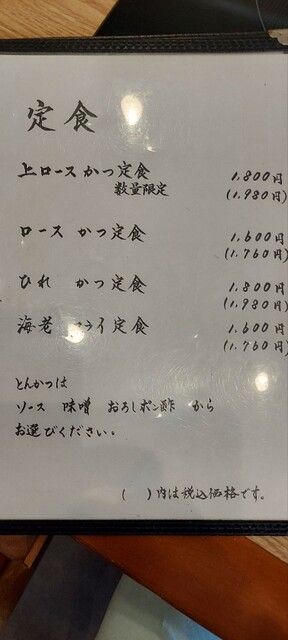 定食
上ロースかつ定食 1,800円
数量限定 (1,980円)
ロース かつ定食 1,600円
(1,760円)
ひれ かつ定食 1,800円
(1,980円)
海老フライ定食 1,600円
(1,760円)
とんかつは
ソース 味噌 おろしポン酢 から
お選びください。
( )内は税込価格です。